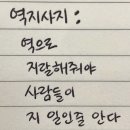 역지사지 :
역으로
지랄해줘야
사람들이
지 일인줄 안다